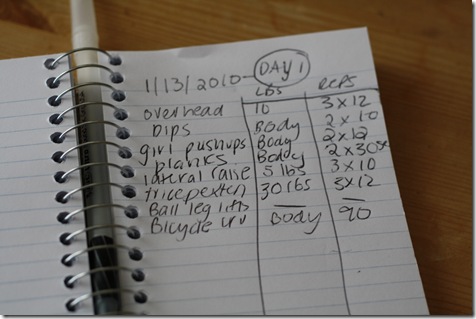 1/13/2010 - DAY 1
LBS REPS
overhead 10 3x12
Dips Body 2x10
girl pushups Body 2x12
planks Body 2x30s
lateral raise 5 lbs 3x10
tricep exten 30 lbs 3x12
Ball leg lifts — —
Bicycle Body 90